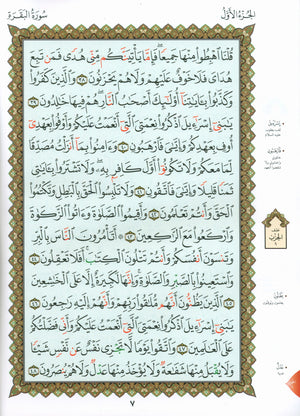 الجزء الأول
سورة البقرة
قُلْنَا اهْبِطُوا مِنْهَا جَمِيعًا فَإِمَّا يَأْتِيَنَّكُم مِّنِّي هُدًى فَمَن تَبِعَ
هُدَايَ فَلَا خَوْفٌ عَلَيْهِمْ وَلَا هُمْ يَحْزَنُونَ ٣٨ وَالَّذِينَ كَفَرُوا
وَكَذَّبُوا بِآيَاتِنَا أُولَٰئِكَ أَصْحَابُ النَّارِ هُمْ فِيهَا خَالِدُونَ ٣٩
يَا بَنِي إِسْرَائِيلَ اذْكُرُوا نِعْمَتِيَ الَّتِي أَنْعَمْتُ عَلَيْكُمْ وَأَوْفُوا بِعَهْدِي
أُوفِ بِعَهْدِكُمْ وَإِيَّايَ فَارْهَبُونِ ٤٠ وَآمِنُوا بِمَا أَنزَلْتُ مُصَدِّقًا
لِّمَا مَعَكُمْ وَلَا تَكُونُوا أَوَّلَ كَافِرٍ بِهِ وَلَا تَشْتَرُوا بِآيَاتِي
ثَمَنًا قَلِيلًا وَإِيَّايَ فَاتَّقُونِ ٤١ وَلَا تَلْبِسُوا الْحَقَّ بِالْبَاطِلِ وَتَكْتُمُوا
الْحَقَّ وَأَنتُمْ تَعْلَمُونَ ٤٢ وَأَقِيمُوا الصَّلَاةَ وَآتُوا الزَّكَاةَ
وَارْكَعُوا مَعَ الرَّاكِعِينَ ٤٣ أَتَأْمُرُونَ النَّاسَ بِالْبِرِّ
وَتَنسَوْنَ أَنفُسَكُمْ وَأَنتُمْ تَتْلُونَ الْكِتَابَ أَفَلَا تَعْقِلُونَ ٤٤
وَاسْتَعِينُوا بِالصَّبْرِ وَالصَّلَاةِ وَإِنَّهَا لَكَبِيرَةٌ إِلَّا عَلَى الْخَاشِعِينَ ٤٥
الَّذِينَ يَظُنُّونَ أَنَّهُم مُّلَاقُو رَبِّهِمْ وَأَنَّهُمْ إِلَيْهِ رَاجِعُونَ ٤٦
يَا بَنِي إِسْرَائِيلَ اذْكُرُوا نِعْمَتِيَ الَّتِي أَنْعَمْتُ عَلَيْكُمْ وَأَنِّي فَضَّلْتُكُمْ
عَلَى الْعَالَمِينَ ٤٧ وَاتَّقُوا يَوْمًا لَّا تَجْزِي نَفْسٌ عَن نَّفْسٍ شَيْئًا
وَلَا يُقْبَلُ مِنْهَا شَفَاعَةٌ وَلَا يُؤْخَذُ مِنْهَا عَدْلٌ وَلَا هُمْ يُنصَرُونَ ٤٨
٧